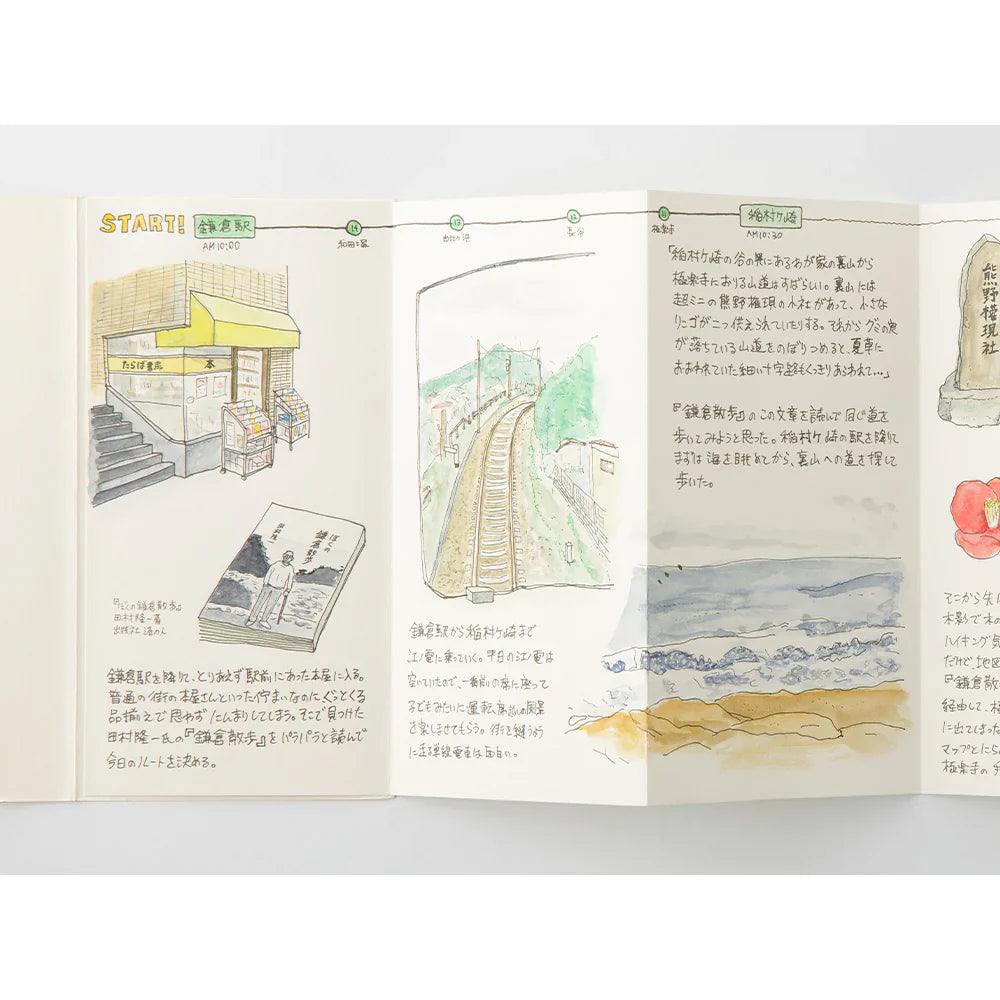 START!
鎌倉駅
AM10:00
14
和田塚
13
由比ヶ浜
12
長谷
11
極楽寺
稲村ヶ崎
AM10:30
たらば書房
本
ぼくの
鎌倉散歩
田村隆一
『ぼくの鎌倉散歩』
田村隆一著
出版社 港の人
鎌倉駅を降りて、とりあえず駅前にあった本屋に入る。
普通の街の本屋さんといった佇まいなのにぐっとくる
品揃えで思わずにんまりしてしまう。そこで見つけた
田村隆一氏の『鎌倉散歩』をパラパラと読んで
今日のルートを決める。
鎌倉駅から稲村ヶ崎まで
江ノ電に乗っていく。平日の江ノ電は
空いていたので、一番前の席に座って
子どもみたいに運転席越しの風景
を楽しませてもらう。街を縫うよう
に走る単線電車は面白い。
「稲村ヶ崎の谷の奥にあるわが家の裏山から
極楽寺におりる山道はすばらしい。裏山には
超ミニの熊野権現の小社があって、小さな
リンゴが二つ供えられていたりする。それからグミの実
が落ちている山道をのぼりつめると、夏草に
おおわれていた細い十字路もくっきりあらわれて…」
『鎌倉散歩』のこの文章を読んで同じ道を
歩いてみようと思った。稲村ヶ崎の駅を降りて
まずは海を眺めてから、裏山への道を探して
歩いた。
熊野権現社
そこから先は
木影で木の
ハイキング気
だけど地図
『鎌倉散
経由して、極
に出てしまった
マップとにら
極楽寺の